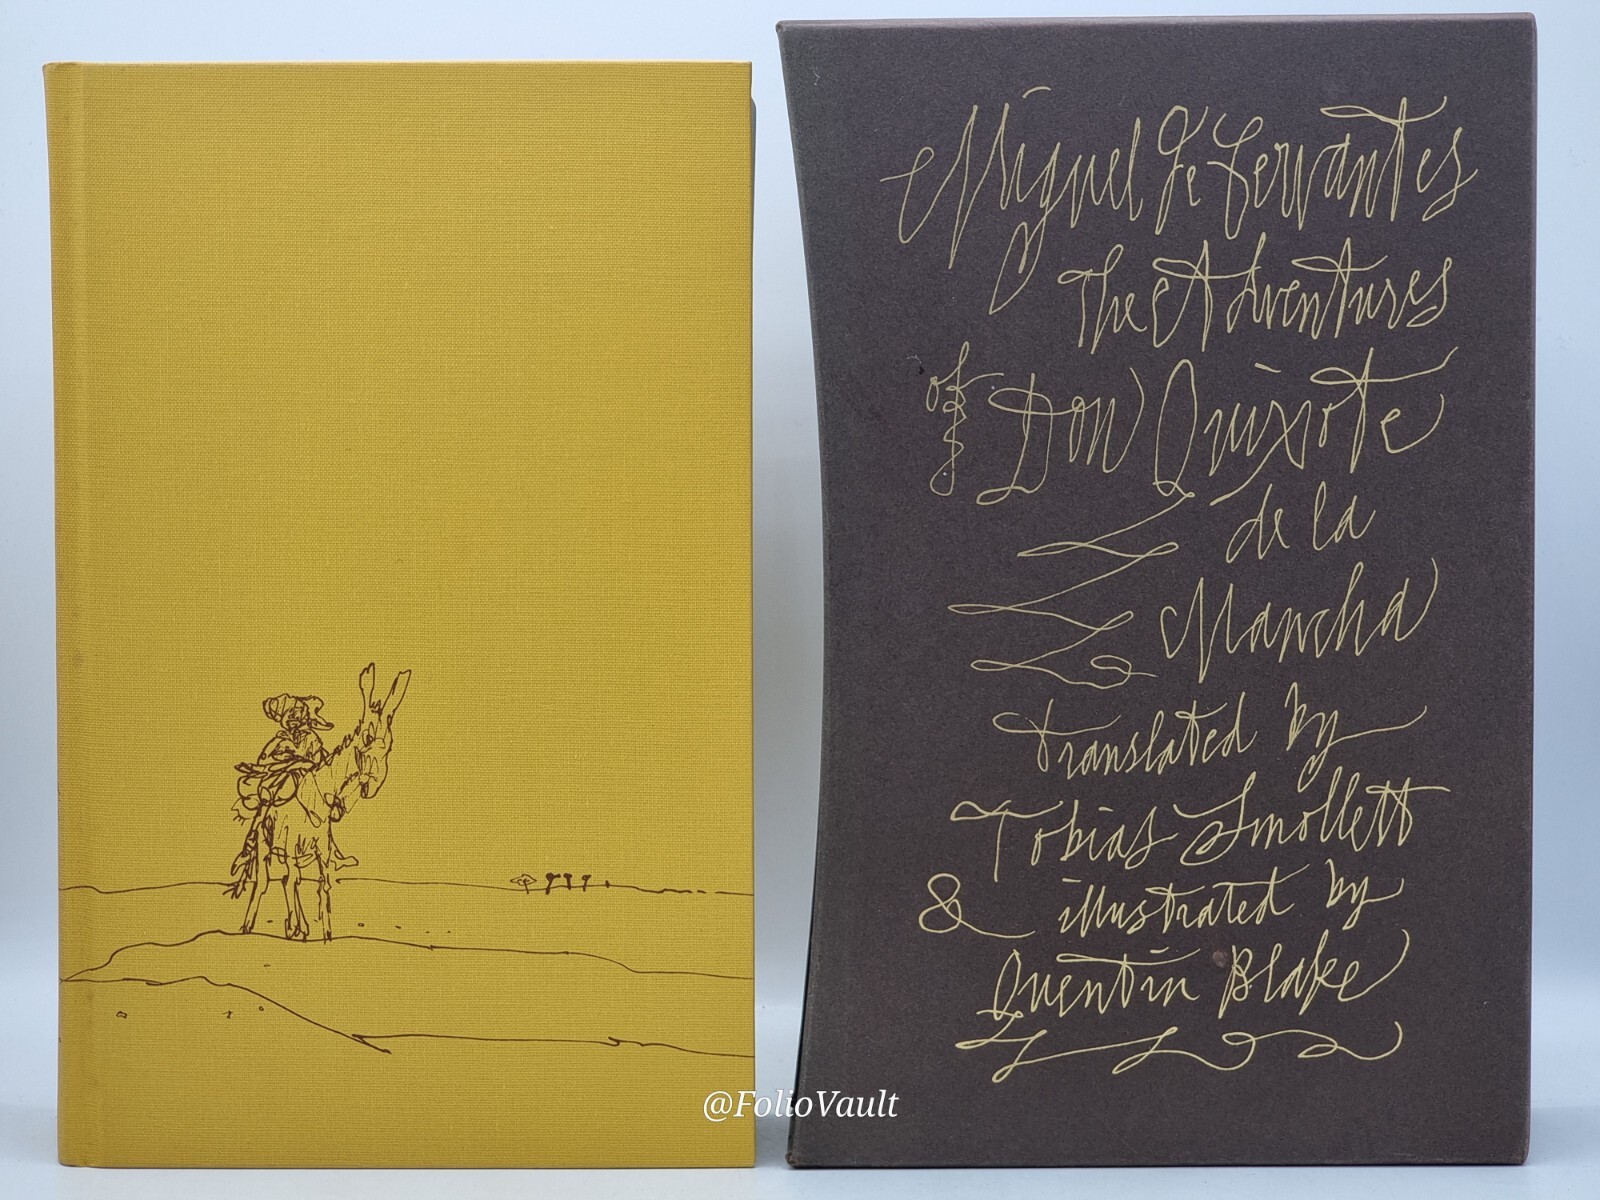 Miguel de Cervantes
The Adventures
of Don Quixote
de la
Mancha
Translated by
Tobias Smollett
& illustrated by
Quentin Blake
@FolioVault